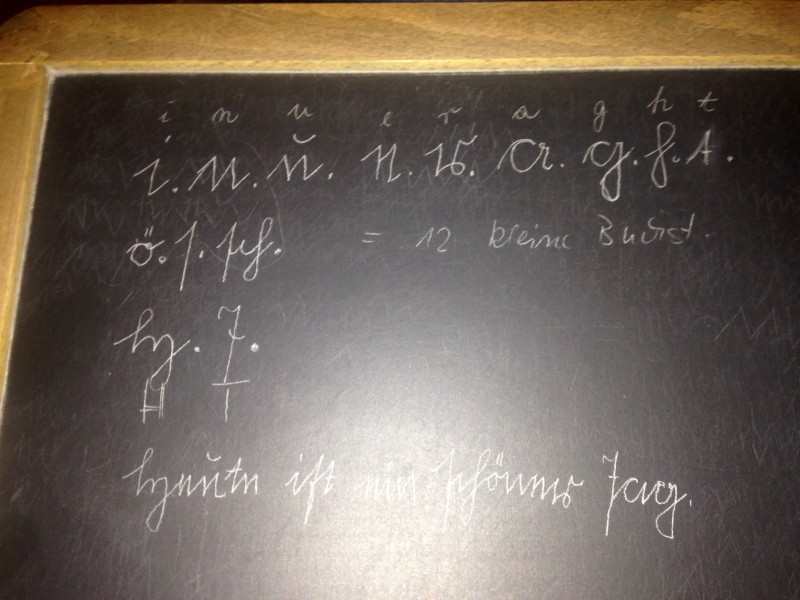 i n u e r a g h t
i. n. u. e. r. a. g. h. t.
ö. s. sch. = 12 kleine Buchst.
H. T.
H T
Heute ist ein schöner Tag.